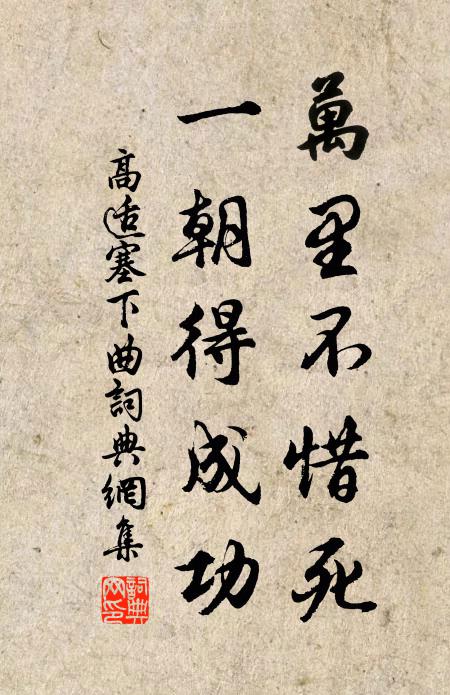 萬里不惜死
一朝得成功
高適塞下曲詞典網集
詞典網印